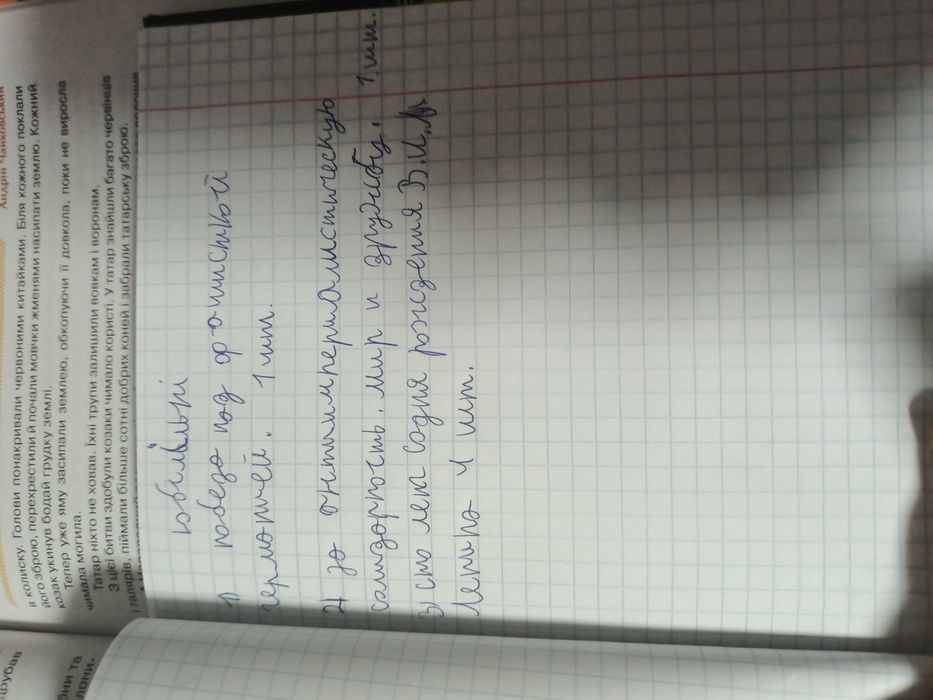 Андрій Чайковський
в колиску. Голови понакривали червоними китайками. Біля кожного поклали
його зброю, перехрестили й почали мовчки жменями насипати землю. Кожний
козак укинув бодай грудку землі.
Тепер уже яму засипали землею, обкопуючи її довкола, поки не виросла
чимала могила.
Татар ніхто не ховав. Їхні трупи залишили вовкам і воронам.
З цієї битви здобули козаки чимало користі. У татар знайшли багато червінців
і талярів, піймали більше сотні добрих коней і забрали татарську зброю.
рубав
бни та
лони-
ювілільні
1) победа над фашисткой
германией. 1 шт.
2) за антиимпериалистическую
салидарность, мир и дружбу, 1 шт.
3) сто лет содня рождения В.И.
Ленина 4 шт.